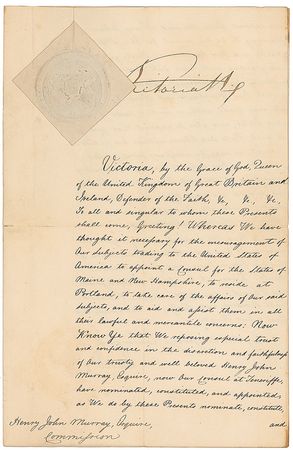 Victoria R
Victoria, by the Grace of God, Queen
of the United Kingdom of Great Britain and
Ireland, Defender of the Faith, &c, &c, &c.
To all and singular to whom these Presents
shall come, Greeting! Whereas We have
thought it necessary for the encouragement of
Our Subjects trading to the United States of
America to appoint a Consul for the States of
Maine and New Hampshire, to reside at
Portland, to take care of the affairs of Our said
Subjects, and to aid and assist them in all
their lawful and mercantile concerns: Now
Know Ye that We reposing especial trust
and confidence in the discretion and faithfulness
of Our trusty and well beloved Henry John
Murray, Esquire, now Our Consul at Teneriffe,
have nominated, constituted, and appointed,
as We do by these Presents nominate, constitute,
and
Henry John Murray, Esquire,
Commission